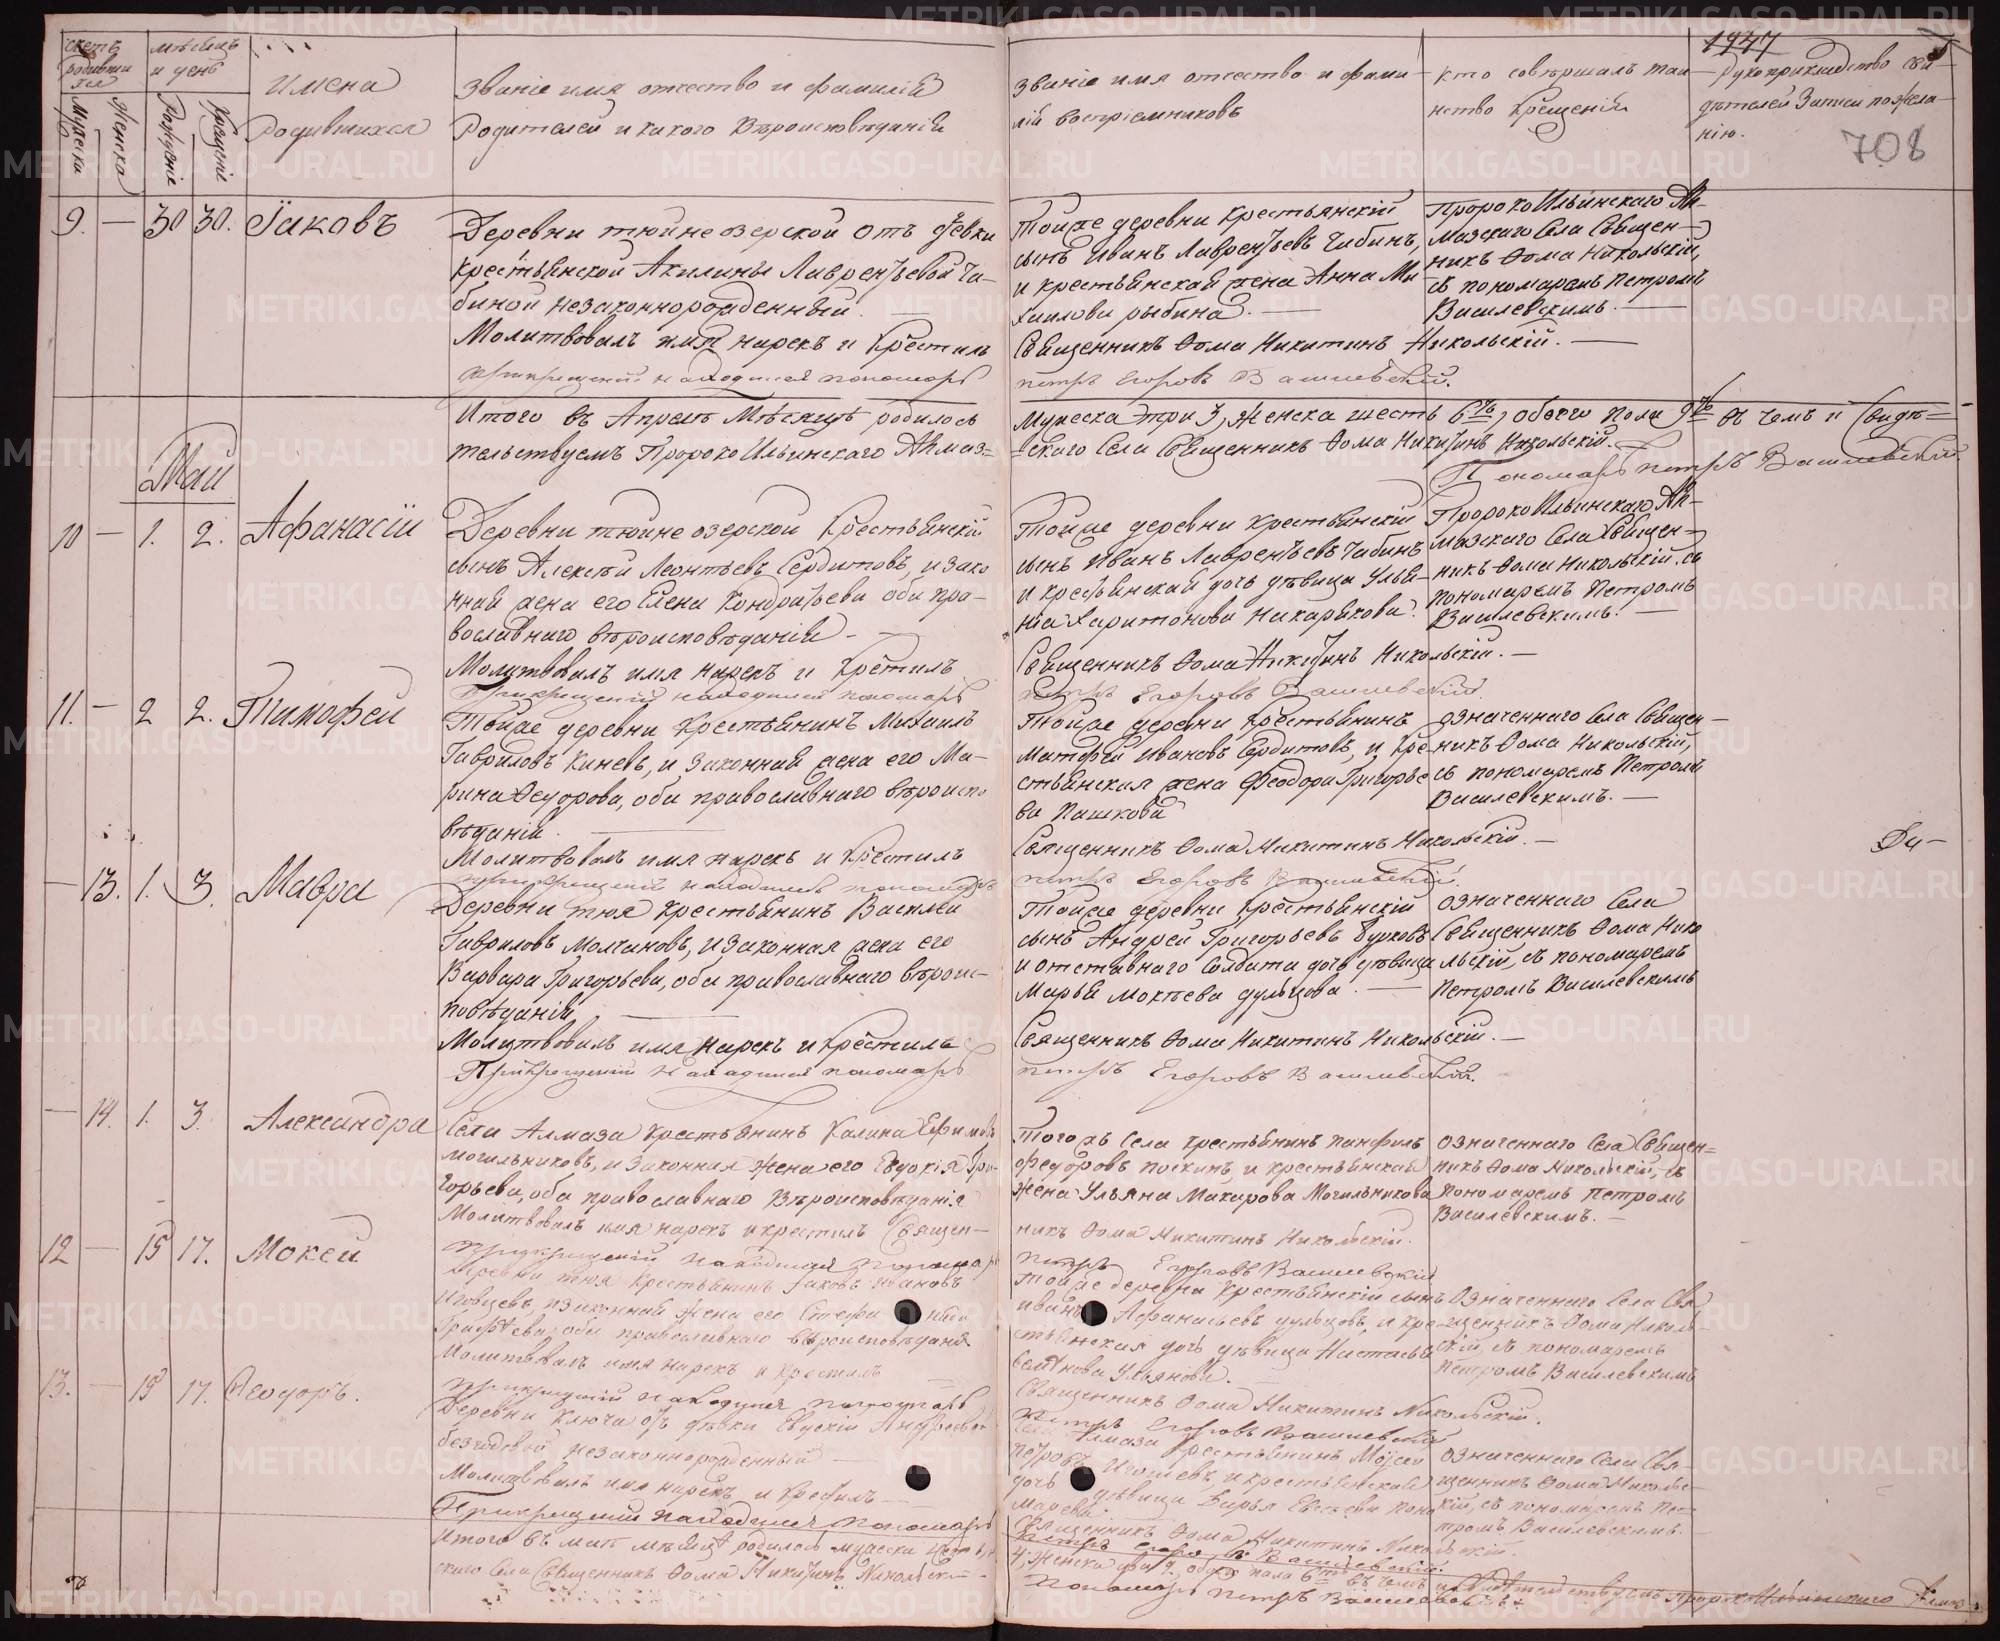 1847
708
счетъ родившихся
Мужеска
Женска
мѣсяцъ и день
Рожденіе
Крещеніе
Имена
Родившихся
Званіе имя отчество и фамилія
Родителей и какого Вѣроисповѣданія
Званіе имя отчество и фами-
лія воспріемниковъ
Кто совершалъ таи-
нство Крещенія
Рукоприкладство сви-
дѣтелей Записи по жела-
нію.
9. — 30 30. Іаковъ
Деревни тюинеозерской отъ девки
крестьянской Акилины Лаврентьевой Чи-
биной незаконнорожденный.
Молитвовалъ имя нарекъ и Крестилъ
При крещеніи находился пономарь
Тойже деревни Крестьянскій
сынъ Иванъ Лаврентьевъ Чибинъ,
и крестьянская жена Анна Ми-
хаилова рыбина.
Священникъ Ѳома Никитинъ Никольскій.
петръ Егоровъ Василевскій.
Пророко Ильинскаго Ал-
мазскаго Села Священ-
никъ Ѳома Никольскій,
съ пономаремъ Петромъ
Василевскимъ.
Итого въ Апрелѣ Мѣсяцѣ родилось
Мужеска три 3, женска шесть 6ть, обоего пола 9ть въ чемъ и свидѣ=
тельствуемъ Пророко Ильинскаго Алмаз=
=скаго Села Священникъ Ѳома Никитинъ Никольскій.
Пономарь петръ Василевскій.
Май
10 — 1. 2. Афанасіи
Деревни тюинеозерской Крестьянскій
сынъ Алексѣй Леонтьевъ Сердитовъ, и зако
нная жена его Елена Кондратьева оба пра-
вославнаго вѣроисповѣданія
Молитвовалъ имя нарекъ и Крестилъ
При крещеніи находился пономарь
Тойже деревни крестьянскій
сынъ Иванъ Лаврентьевъ Чибинъ
и крестьянская дочь дѣвица Улья-
нія Харитонова
Священникъ Ѳома Никитинъ Никольскій.
петръ Егоровъ Василевскій.
Пророко Ильинскаго Ал-
мазскаго Села Священ-
никъ Ѳома Никольскій, съ
пономаремъ Петромъ
Василевскимъ.
11. — 2 2. Тимофей
Тойже деревни Крестьянинъ Михаилъ
Гавриловъ Киневъ, и законная жена его Ма-
рина Ѳедорова, оба православнаго вѣроиспо
вѣданія.
Молитвовалъ имя нарекъ и Крестилъ
при крещеніи находился пономарь
Тойже деревни Крестьянинъ
Матфей Ивановъ Сердитовъ, и Кре-
стьянская жена Феодора Григорье
ва Пашкова
Священникъ Ѳома Никитинъ Никольскій.
петръ Егоровъ Василевскій.
означеннаго Села Священ-
никъ Ѳома Никольскій,
съ пономаремъ Петромъ
Василевскимъ.
— 13. 1. 3. Мавра
Деревни тюя крестьянинъ Василей
Гавриловъ Молчановъ, и законная жена его
Варвара Григорьева, оба православнаго вѣроис-
повѣданія,
Молитвовалъ имя нарекъ и крестилъ
При Крещеніи находился пономарь
Тойже деревни Крестьянскій
сынъ Андрей Григорьевъ Бурковъ
и отставнаго солдата дочь дѣвица
Марья Мокѣева
Священникъ Ѳома Никитинъ Никольскій.
петръ Егоровъ Василевскій.
означеннаго Села
Священникъ Ѳома Нико
льскій, съ пономаремъ
Петромъ Василевскимъ
— 14. 1. 3. Александра
Села Алмаза крестьянинъ Калина Ефимовъ
Могильниковъ, и законная жена его Евдокія Гри-
горьева, оба православнаго Вѣроисповѣданія
Молитвовалъ имя нарекъ и крестилъ Священ-
При крещеніи находился пономарь
Тогожъ Села крестьянинъ Панфилъ
Федоровъ и крестьянская
жена Ульяна Макарова Могильникова
никъ Ѳома Никитинъ Никольскій.
петръ Егоровъ Василевскій
означеннаго Села Священ=
никъ Ѳома Никольскій, съ
пономаремъ Петромъ
Василевскимъ.
12 — 15 17. Мокей
деревни тюя крестьянинъ Іаковъ Ивановъ
и законная жена его
оба православнаго вѣроисповѣданія
Молитвовалъ имя нарекъ и крестилъ
При крещеніи находился пономарь
Тойже деревни Крестьянскій сынъ
Иванъ Афанасьевъ и кре-
стьянская дочь дѣвица Настасья
Ульянова.
Священникъ Ѳома Никитинъ Никольскій.
петръ Егоровъ Василевскій
Означеннаго Села Свя-
щенникъ Ѳома Николь-
скій, съ пономаремъ
Петромъ Василевскимъ
13. — 15 17. Ѳеодоръ.
Деревни Ключа отъ дѣвки Андреевой
незаконнорожденный
Молитвовалъ имя нарекъ и крестилъ
При крещеніи находился пономарь
Села Алмаза крестьянинъ Мойсей
Петровъ и крестьянская
дочь дѣвица Дарья
Священникъ Ѳома Никитинъ Никольскій.
петръ Егоровъ Василевскій.
означеннаго Села Свя-
щенникъ Ѳома Николь-
скій, съ пономаремъ Пет-
тромъ Василевскимъ.
Итого въ маѣ мѣсяцѣ родилось мужеска
4, женска два 2, обоего пола 6ть въ чемъ и свидѣтельствуемъ пророко Ильинскаго Алмаз-
скаго Села Священникъ Ѳома Никитинъ Никольскій
Пономарь петръ Василевскій
METRIKI.GASO-URAL.RU